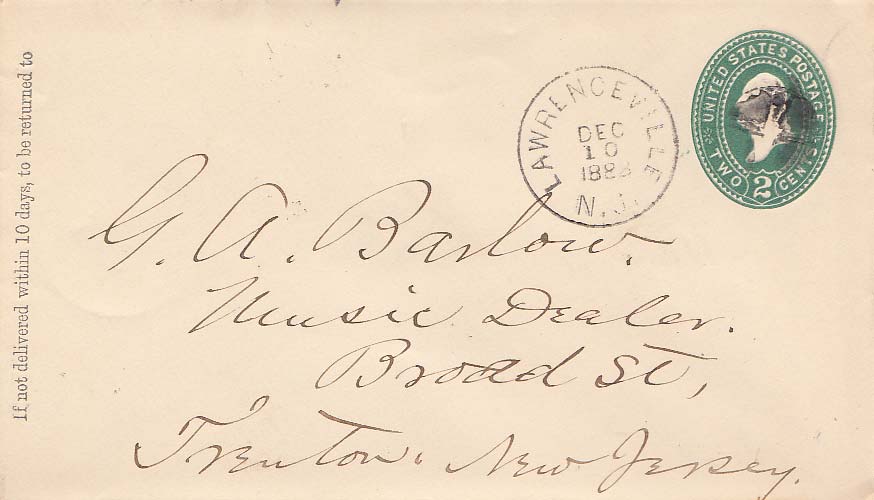 If not delivered within 10 days, to be returned to
LAWRENCEVILLE
DEC
10
N. J.
UNITED STATES POSTAGE
TWO 2 CENTS
G. A. Barlow.
Music Dealer.
Broad St,
Trenton. New Jersey.